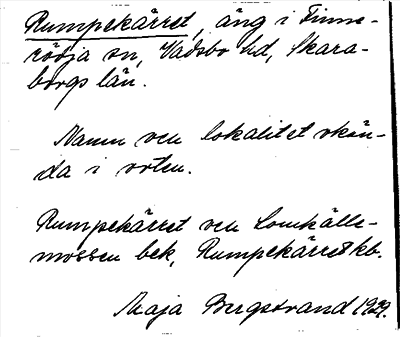 Rumpekärret, äng i Finne-
rödja sn, Vadsbo hd, Skara-
borgs län.
Namn och lokalitet okän-
da i orten.
Rumpekärret och Lomkälls-
mossen bek, Rumpekärret kb.
Maja Bergstrand 1929.